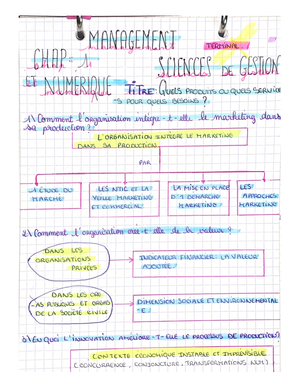 MANAGEMENT
TERMINAL
CHAP. 1: SCIENCES DE GESTION
ET NUMÉRIQUE TITRE: QUELS PRODUITS OU QUELS SERVICE
-S POUR QUELS BESOINS ?
1\ Comment l'organisation intègre-t-elle le marketing dans
sa production ?
L'ORGANISATION INTÈGRE LE MARKETING
DANS SA PRODUCTION
PAR
L'ÉTUDE DU MARCHÉ
LES NTIC ET LA VEILLE MARKETING ET COMMERCIALE
LA MISE EN PLACE D'1 DÉMARCHE MARKETING
LES APPROCHES MARKETING
2\ Comment l'organisation crée-t-elle de la valeur ?
DANS LES ORGANISATIONS PRIVÉES
INDICATEUR FINANCIER: LA VALEUR AJOUTÉE
DANS LES ORG
-AS PUBLIQUES ET ORGAS
DE LA SOCIÉTÉ CIVILE
DIMENSION SOCIALE ET ENVIRONNEMENTAL
-E
3\ EN QUOI L'INNOVATION AMÉLIORE-T-ELLE LE PROCESSUS DE PRODUCTION ?
CONTEXTE ÉCONOMIQUE INSTABLE ET IMPRÉVISIBLE
(CONCURRENCE, CONJONCTURE, TRANSFORMATIONS NUM)